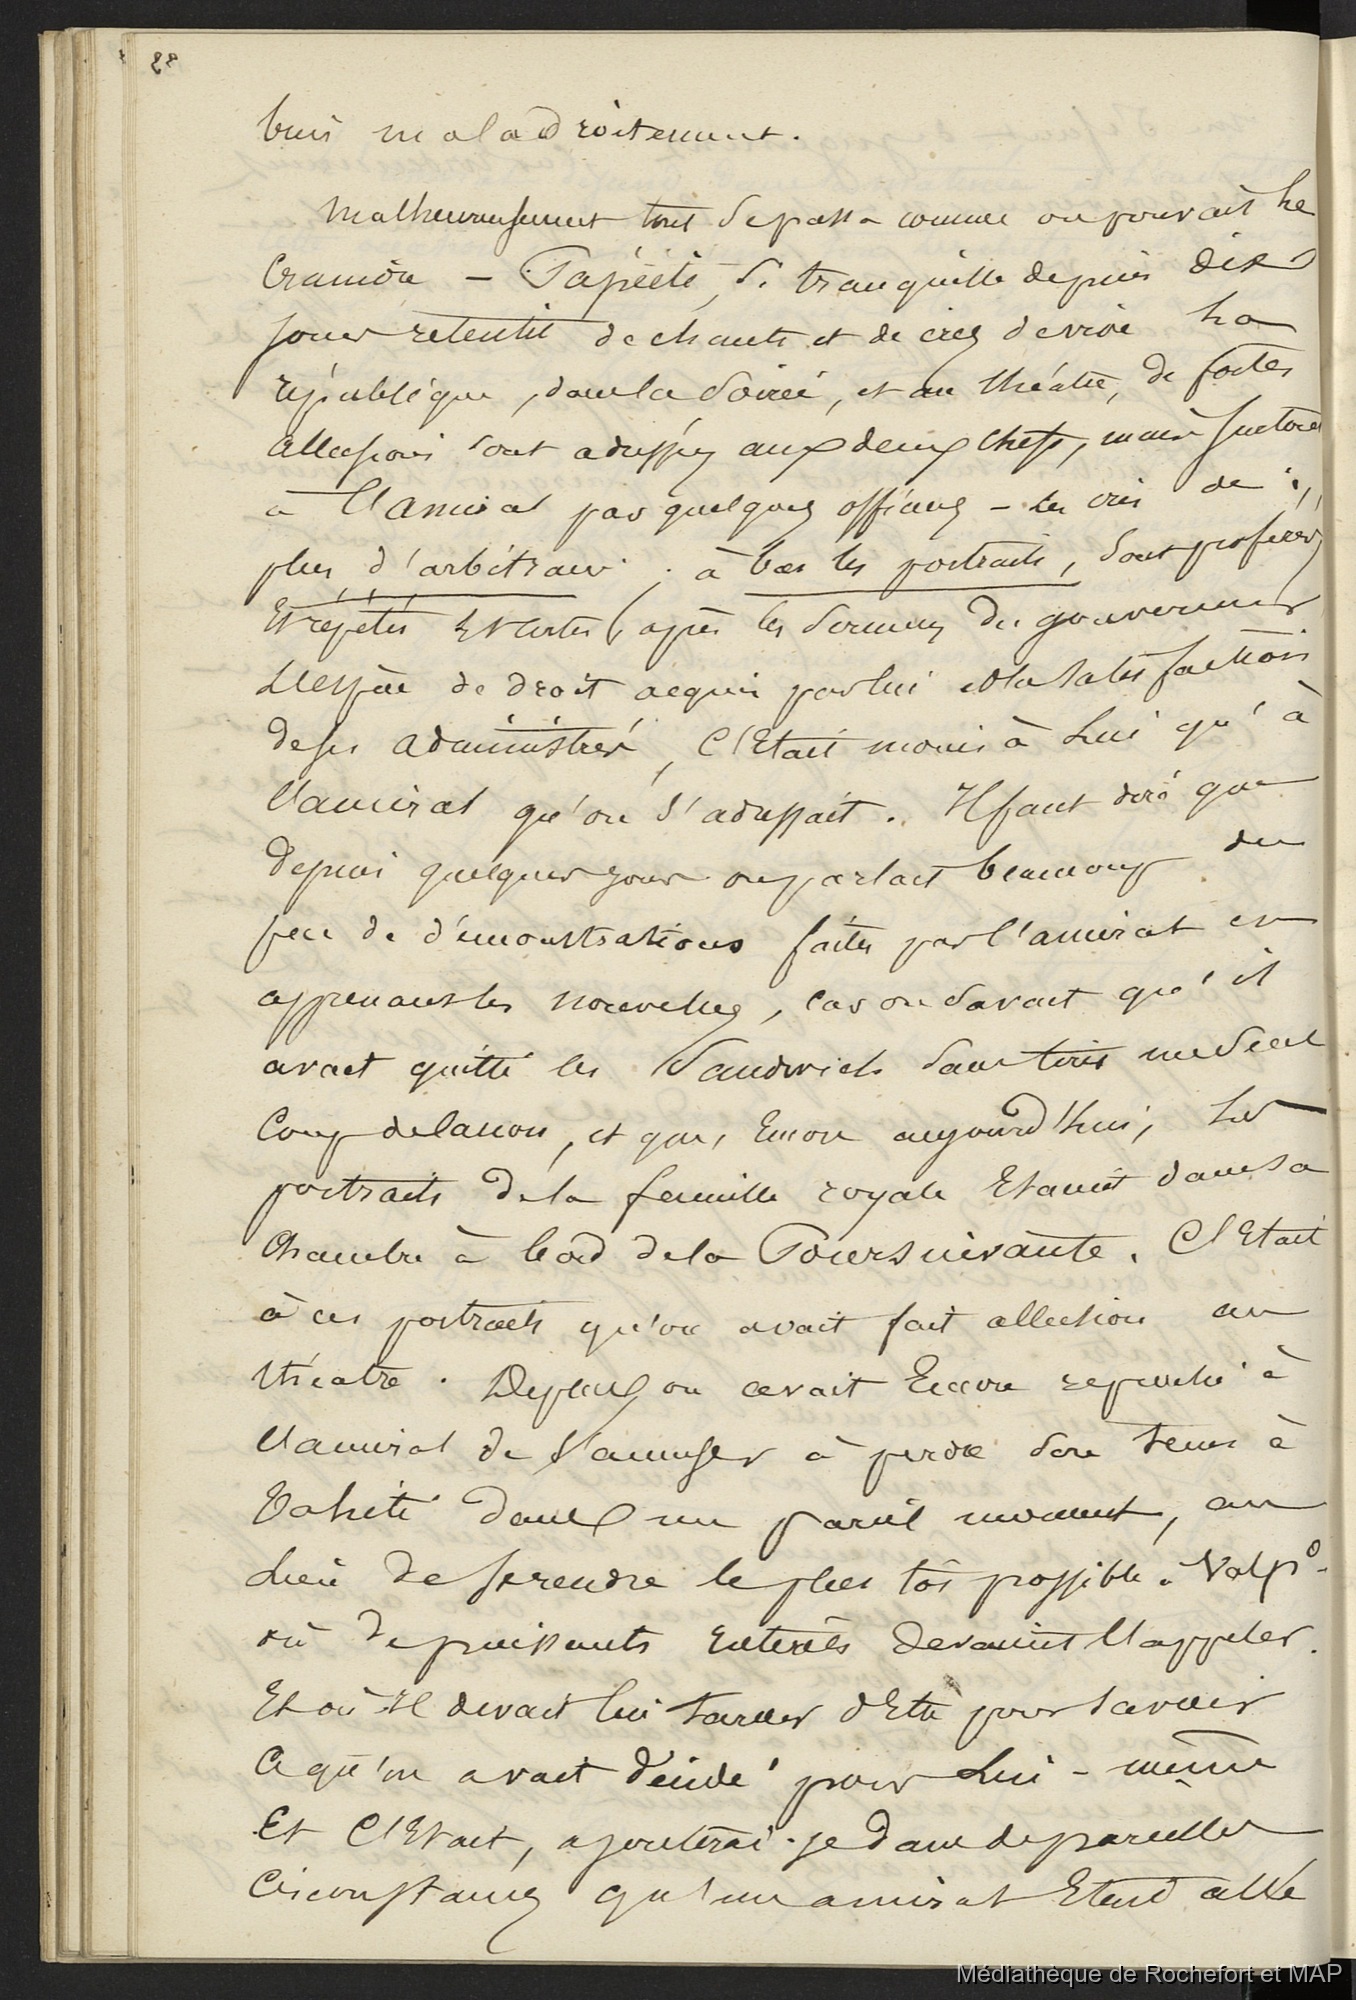 28
bien maladroitement.
Malheureusement tout se passa comme on pouvait le
craindre – Papéété, si tranquille depuis dix
jours retentit de chants et de cris de vive la
république, dans la soirée, et au théatre, de fortes
allusions sont adressées aux deux chefs, mais surtout
à l'amiral par quelques officiers – les cris de :
plus d'arbitraire ; à bas les portraits, sont proférés
et répétés et certes après les sermens du gouverneur
l'espèce de droit acquis par lui à la satisfaction
de ses administrés, c'était moins à lui qu'à
l'amiral qu'on s'adressait. Il faut dire que
depuis quelques jours on parlait beaucoup du
peu de démonstrations faites par l'amiral en
apprenant les nouvelles, car on savait qu'il
avait quitté les Sandwich sans tirer un seul
coup de canon, et que, encore aujourd'hui, les
portraits de la famille royale étaient dans sa
chambre à bord de la Poursuivante. C'était
à ces portraits qu'on avait fait allusion au
théatre. De plus on avait encore reproché à
l'amiral de s'amuser à perdre son tems à
Tahiti dans un pareil moment, au
lieu de se rendre le plus tôt possible à Valpo.
où de puissants intérêts devaient l'appeler.
Et où il devait lui tarder d'être pour savoir
ce qu'on avait décidé pour lui-même
Et c'était, ajouterai-je dans de pareilles
circonstances qu'un amiral était allé
Médiathèque de Rochefort et MAP